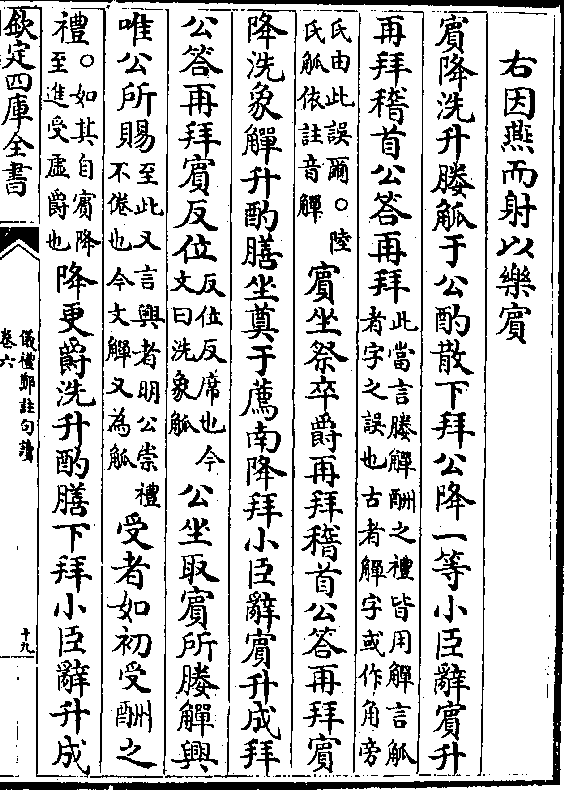 右因燕而射以樂賓
賓降洗升媵觚于公酌散下拜公降一等小臣辭賓升
再拜稽首公答再拜
此當言媵觶酬之禮皆用觶言觚
者字之誤也古者觶字或作角旁
氏由此誤爾○陸
氏觚依註音觶
賓坐祭卒爵再拜稽首公答再拜賓
降洗象觶升酌膳坐奠于薦南降拜小臣辭賓升成拜
公答再拜賓反位
反位反席也今
文曰洗象觚
公坐取賓所媵觶興
唯公所賜
至此又言興者明公崇禮
不倦也今文觶又為觚
受者如初受酬之
禮
○如其自賓降
至進受虛爵也
降更爵洗升酌膳下拜小臣辭升成
欽定四庫全書
儀禮鄭註句讀
卷六
十九